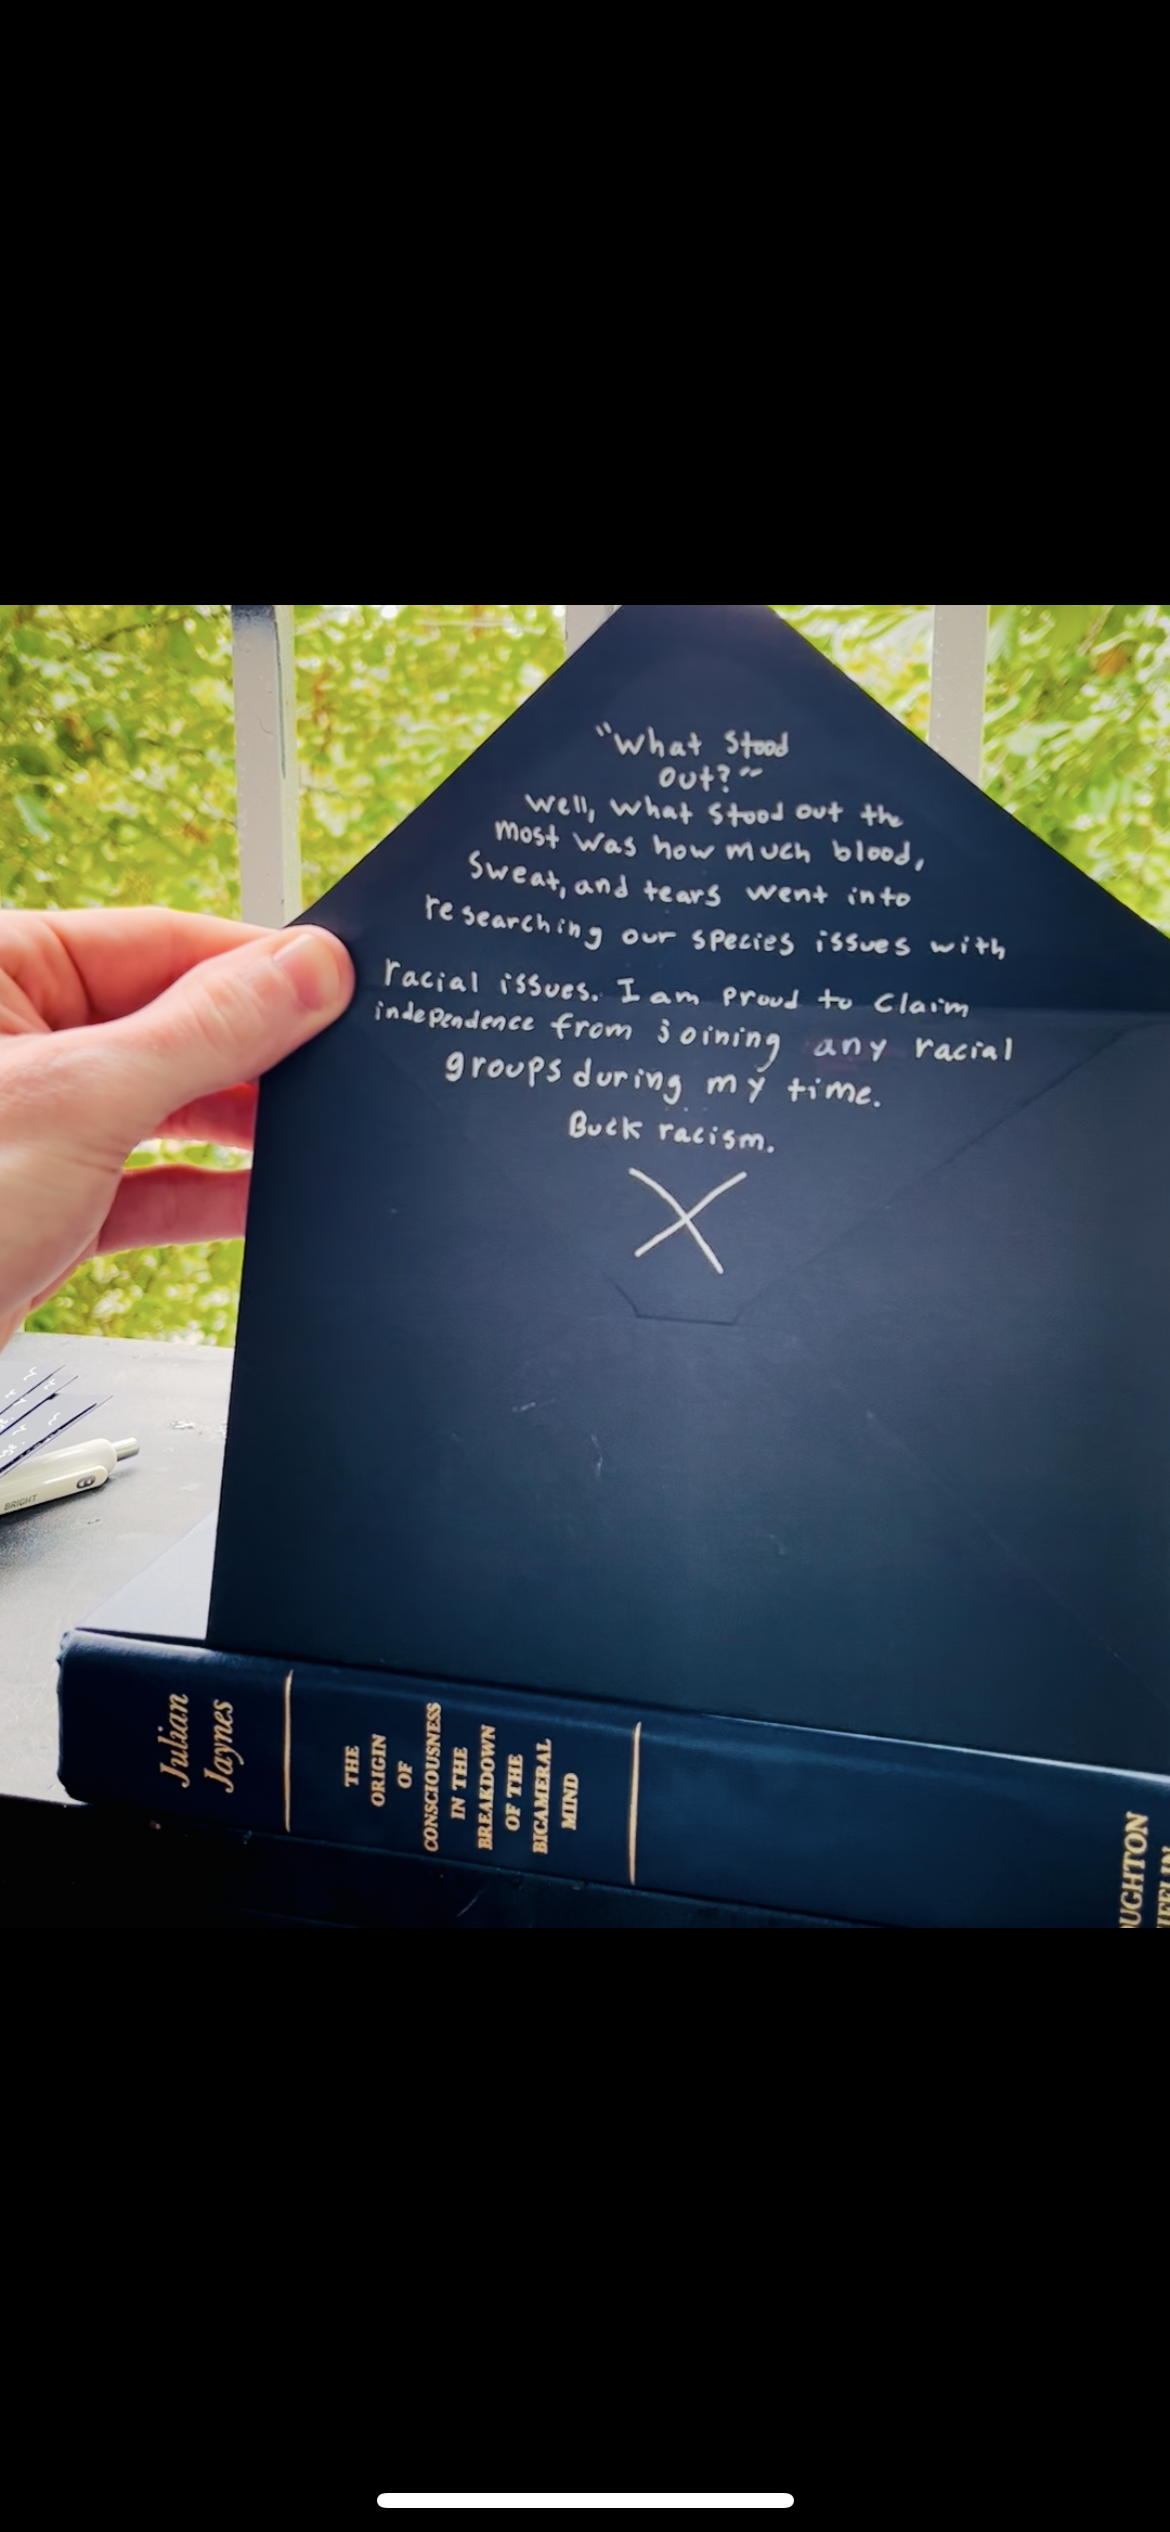 "What Stood
Out?"
Well, what stood out the
most was how much blood,
Sweat, and tears went into
researching our species issues with
racial issues. I am proud to Claim
independence from joining any racial
groups during my time.
Buck racism.
X
BRIGHT
Julian
Jaynes
THE
ORIGIN
OF
CONSCIOUSNESS
IN THE
BREAKDOWN
OF THE
BICAMERAL
MIND
OUGHTON